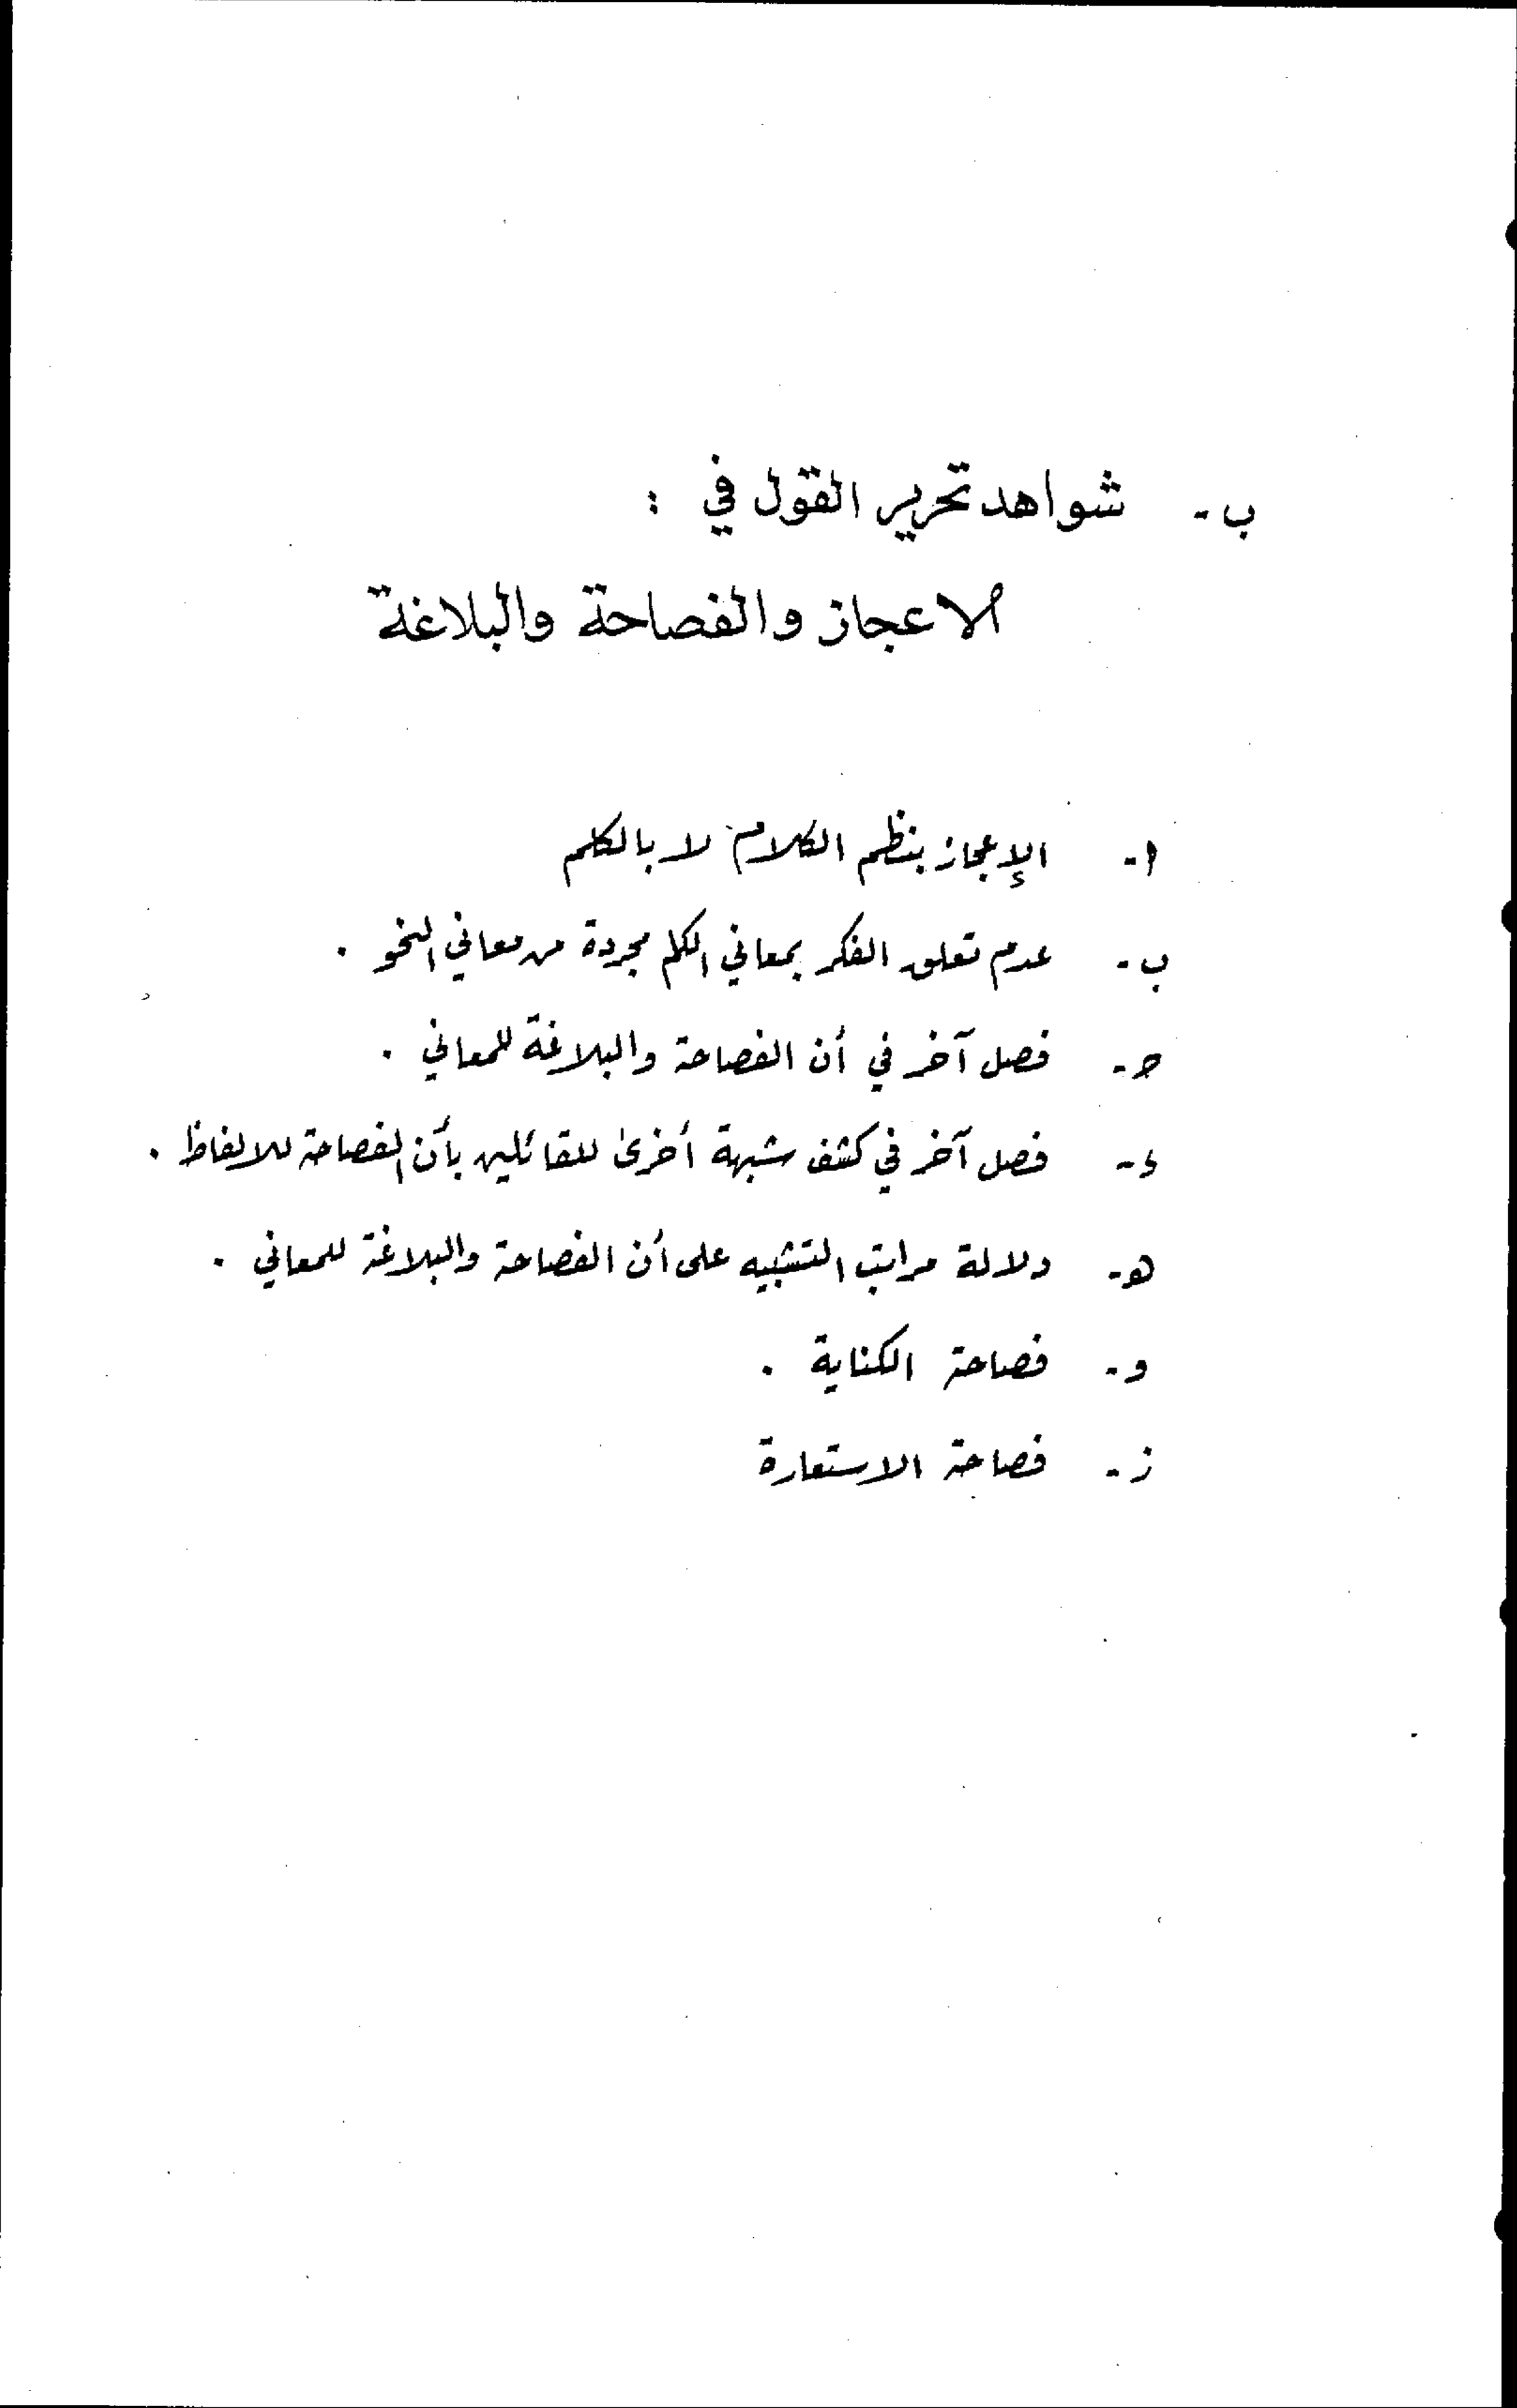 ب - شواهد تحرير القول في :
الاعجاز والفصاحة والبلاغة
ا - الإعجاز بنظم الكلام لا بالكلم
ب - عدم تعلق الفكر بمعاني الكلم مجردة من معاني النحو .
ج - فصل آخر في أن الفصاحة والبلاغة للمعاني .
د - فصل آخر في كشف شبهة أخرى للقائلين بأن الفصاحة للالفاظ .
هـ - دلالة مراتب التشبيه على أن الفصاحة والبلاغة للمعاني .
و - فصاحة الكناية .
ز - فصاحة الاستعارة